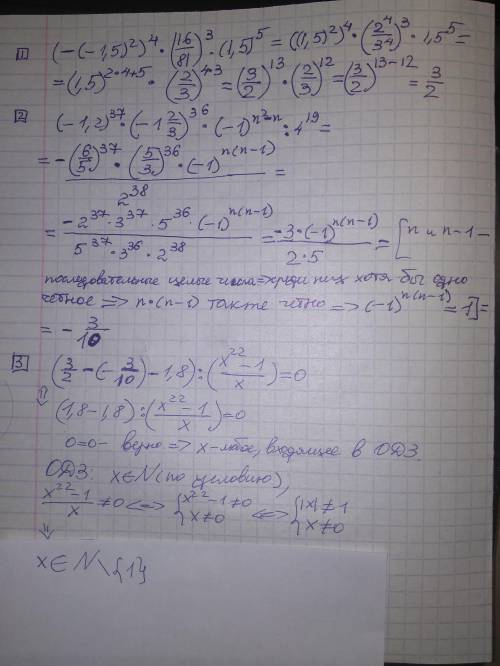 1 (-(-1,5)²)⁴ · (16/81)³ · (1,5)⁵ = ((1,5)²)⁴ · (2⁴/3⁴)³ · 1,5⁵ =
= (1,5)^(2·4+5) · (2/3)^(4·3) = (3/2)¹³ · (2/3)¹² = (3/2)^(13-12) = 3/2
2 (-1,2)³⁷ · (-1 2/3)³⁶ · (-1)^(n²-n) : 4¹⁹ =
= -(6/5)³⁷ · (5/3)³⁶ · (-1)^(n(n-1)) / 2³⁸ =
= -2³⁷ · 3³⁷ · 5³⁶ · (-1)^(n(n-1)) / 5³⁷ · 3³⁶ · 2³⁸ = -3 · (-1)^(n(n-1)) / 2 · 5 = [n и n-1 -
последовательные целые числа => среди них хотя бы одно
четное => n·(n-1) также четно => (-1)^(n(n-1)) = 1] =
= - 3/10
3 (3/2 - (-3/10) - 1,8) : (x²²-1 / x) = 0
⇓ (1,8-1,8) : (x²²-1 / x) = 0
0=0 - верно => x - любое, входящее в ОДЗ.
ОДЗ: x∈N (по условию),
x²²-1 / x ≠ 0 <=> { x²²-1≠0 x≠0 <=> { |x|≠1 x≠0
⇓
x∈N\{1}